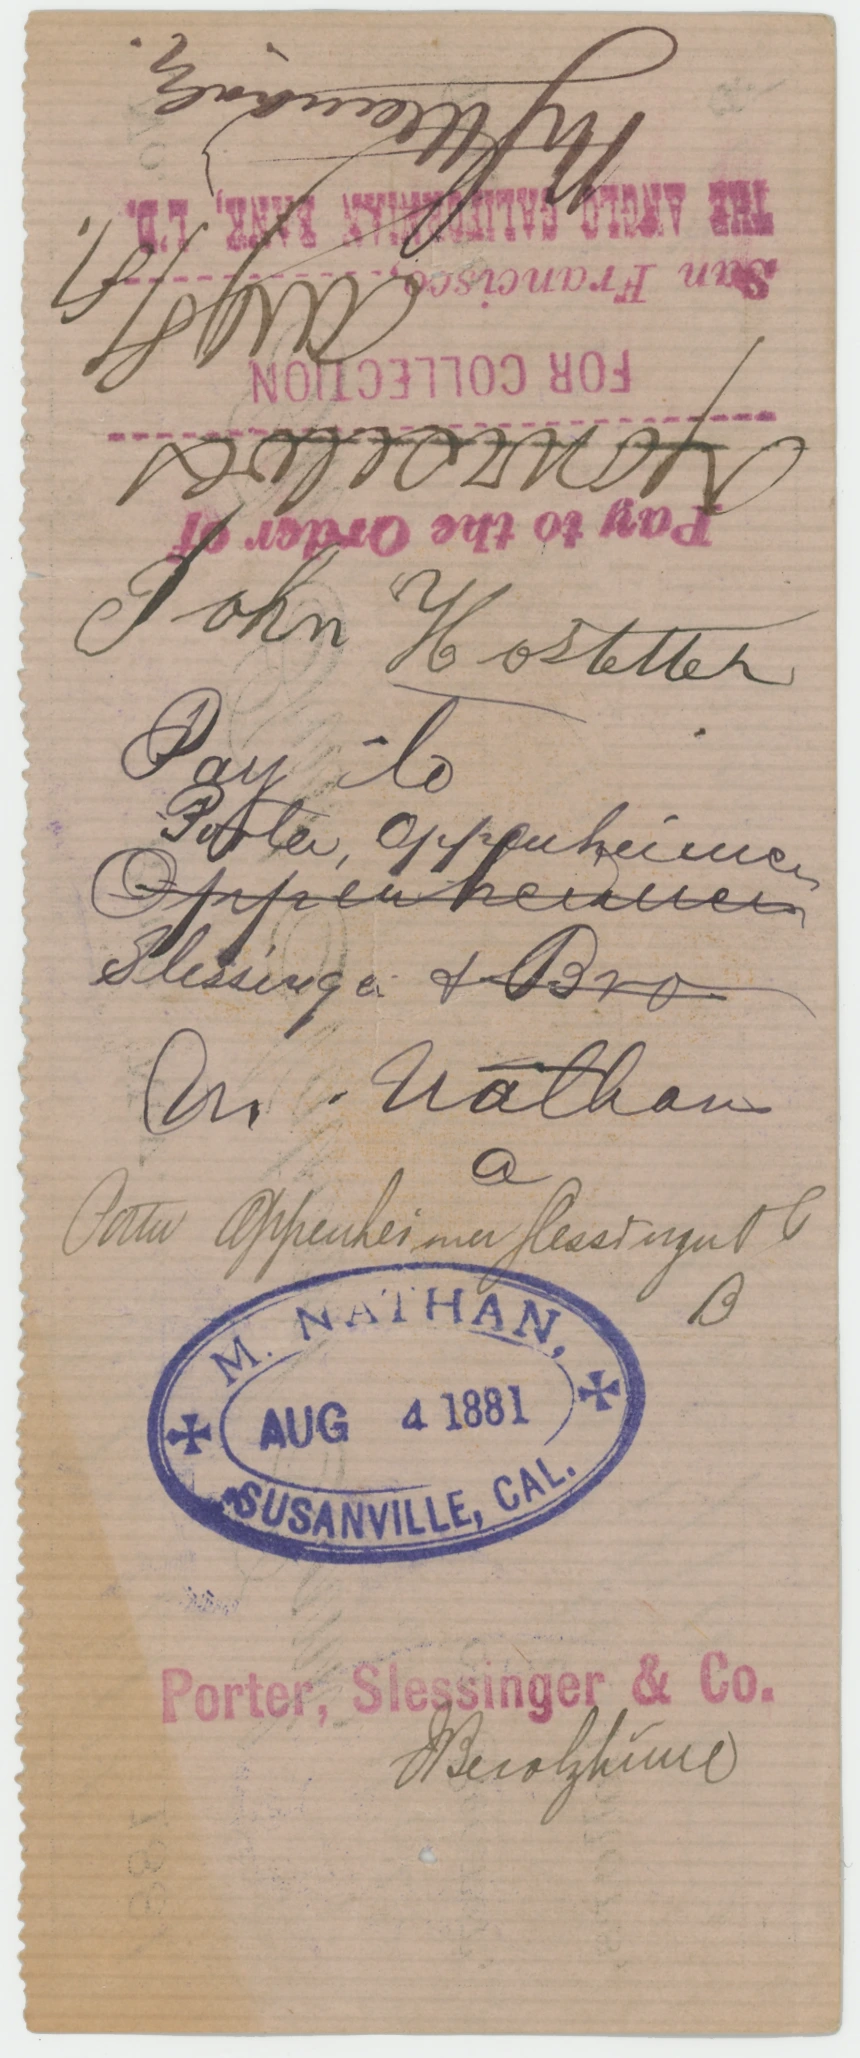 John Hostetter
Pay to
Porter, Oppenheimer
Oppenheimer
Slessinger & Bro
M. Nathan
a
Porter Oppenheimer Slessinger & C
B
M. NATHAN,
AUG 4 1881
SUSANVILLE, CAL.
Porter, Slessinger & Co.
Pay to the Order of
Ourselves
FOR COLLECTION
San Francisco,
THE ANGLO CALIFORNIAN BANK, L'D.